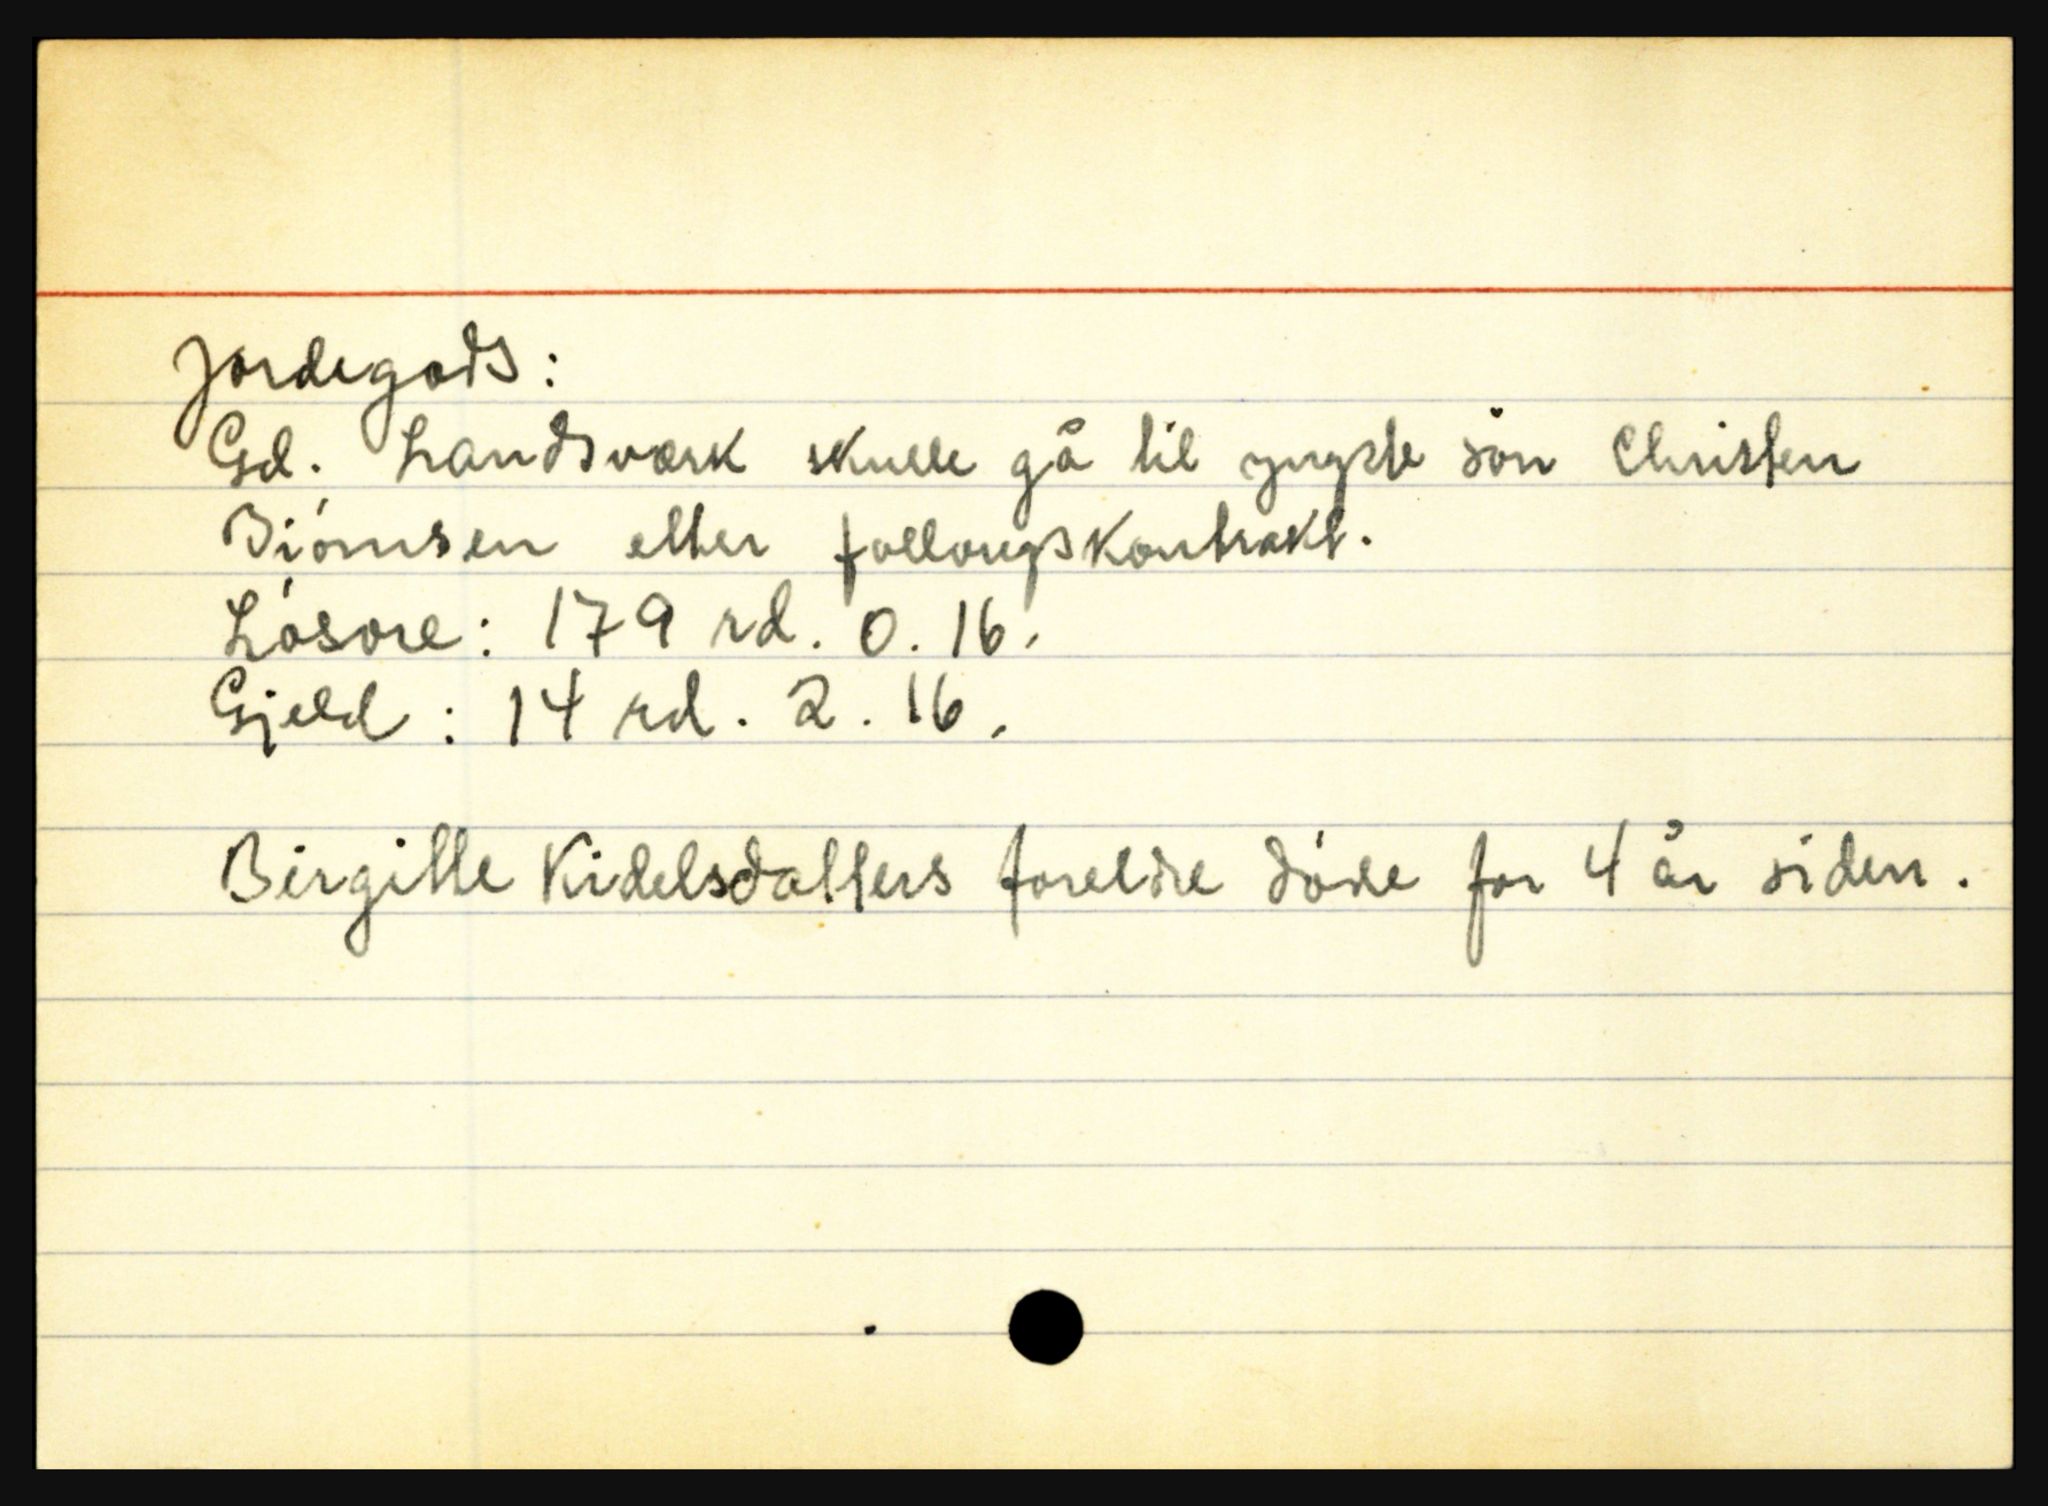 Jordegods:
Gd. Landsværk skulle gå til yngste sön Christen
Biörnsen etter follougskontrakt.
Lösöre: 179 rd. 0. 16.
Gjeld: 14 rd. 2. 16.
Birgitte Kidelsdatters foreldre döde for 4 år siden.